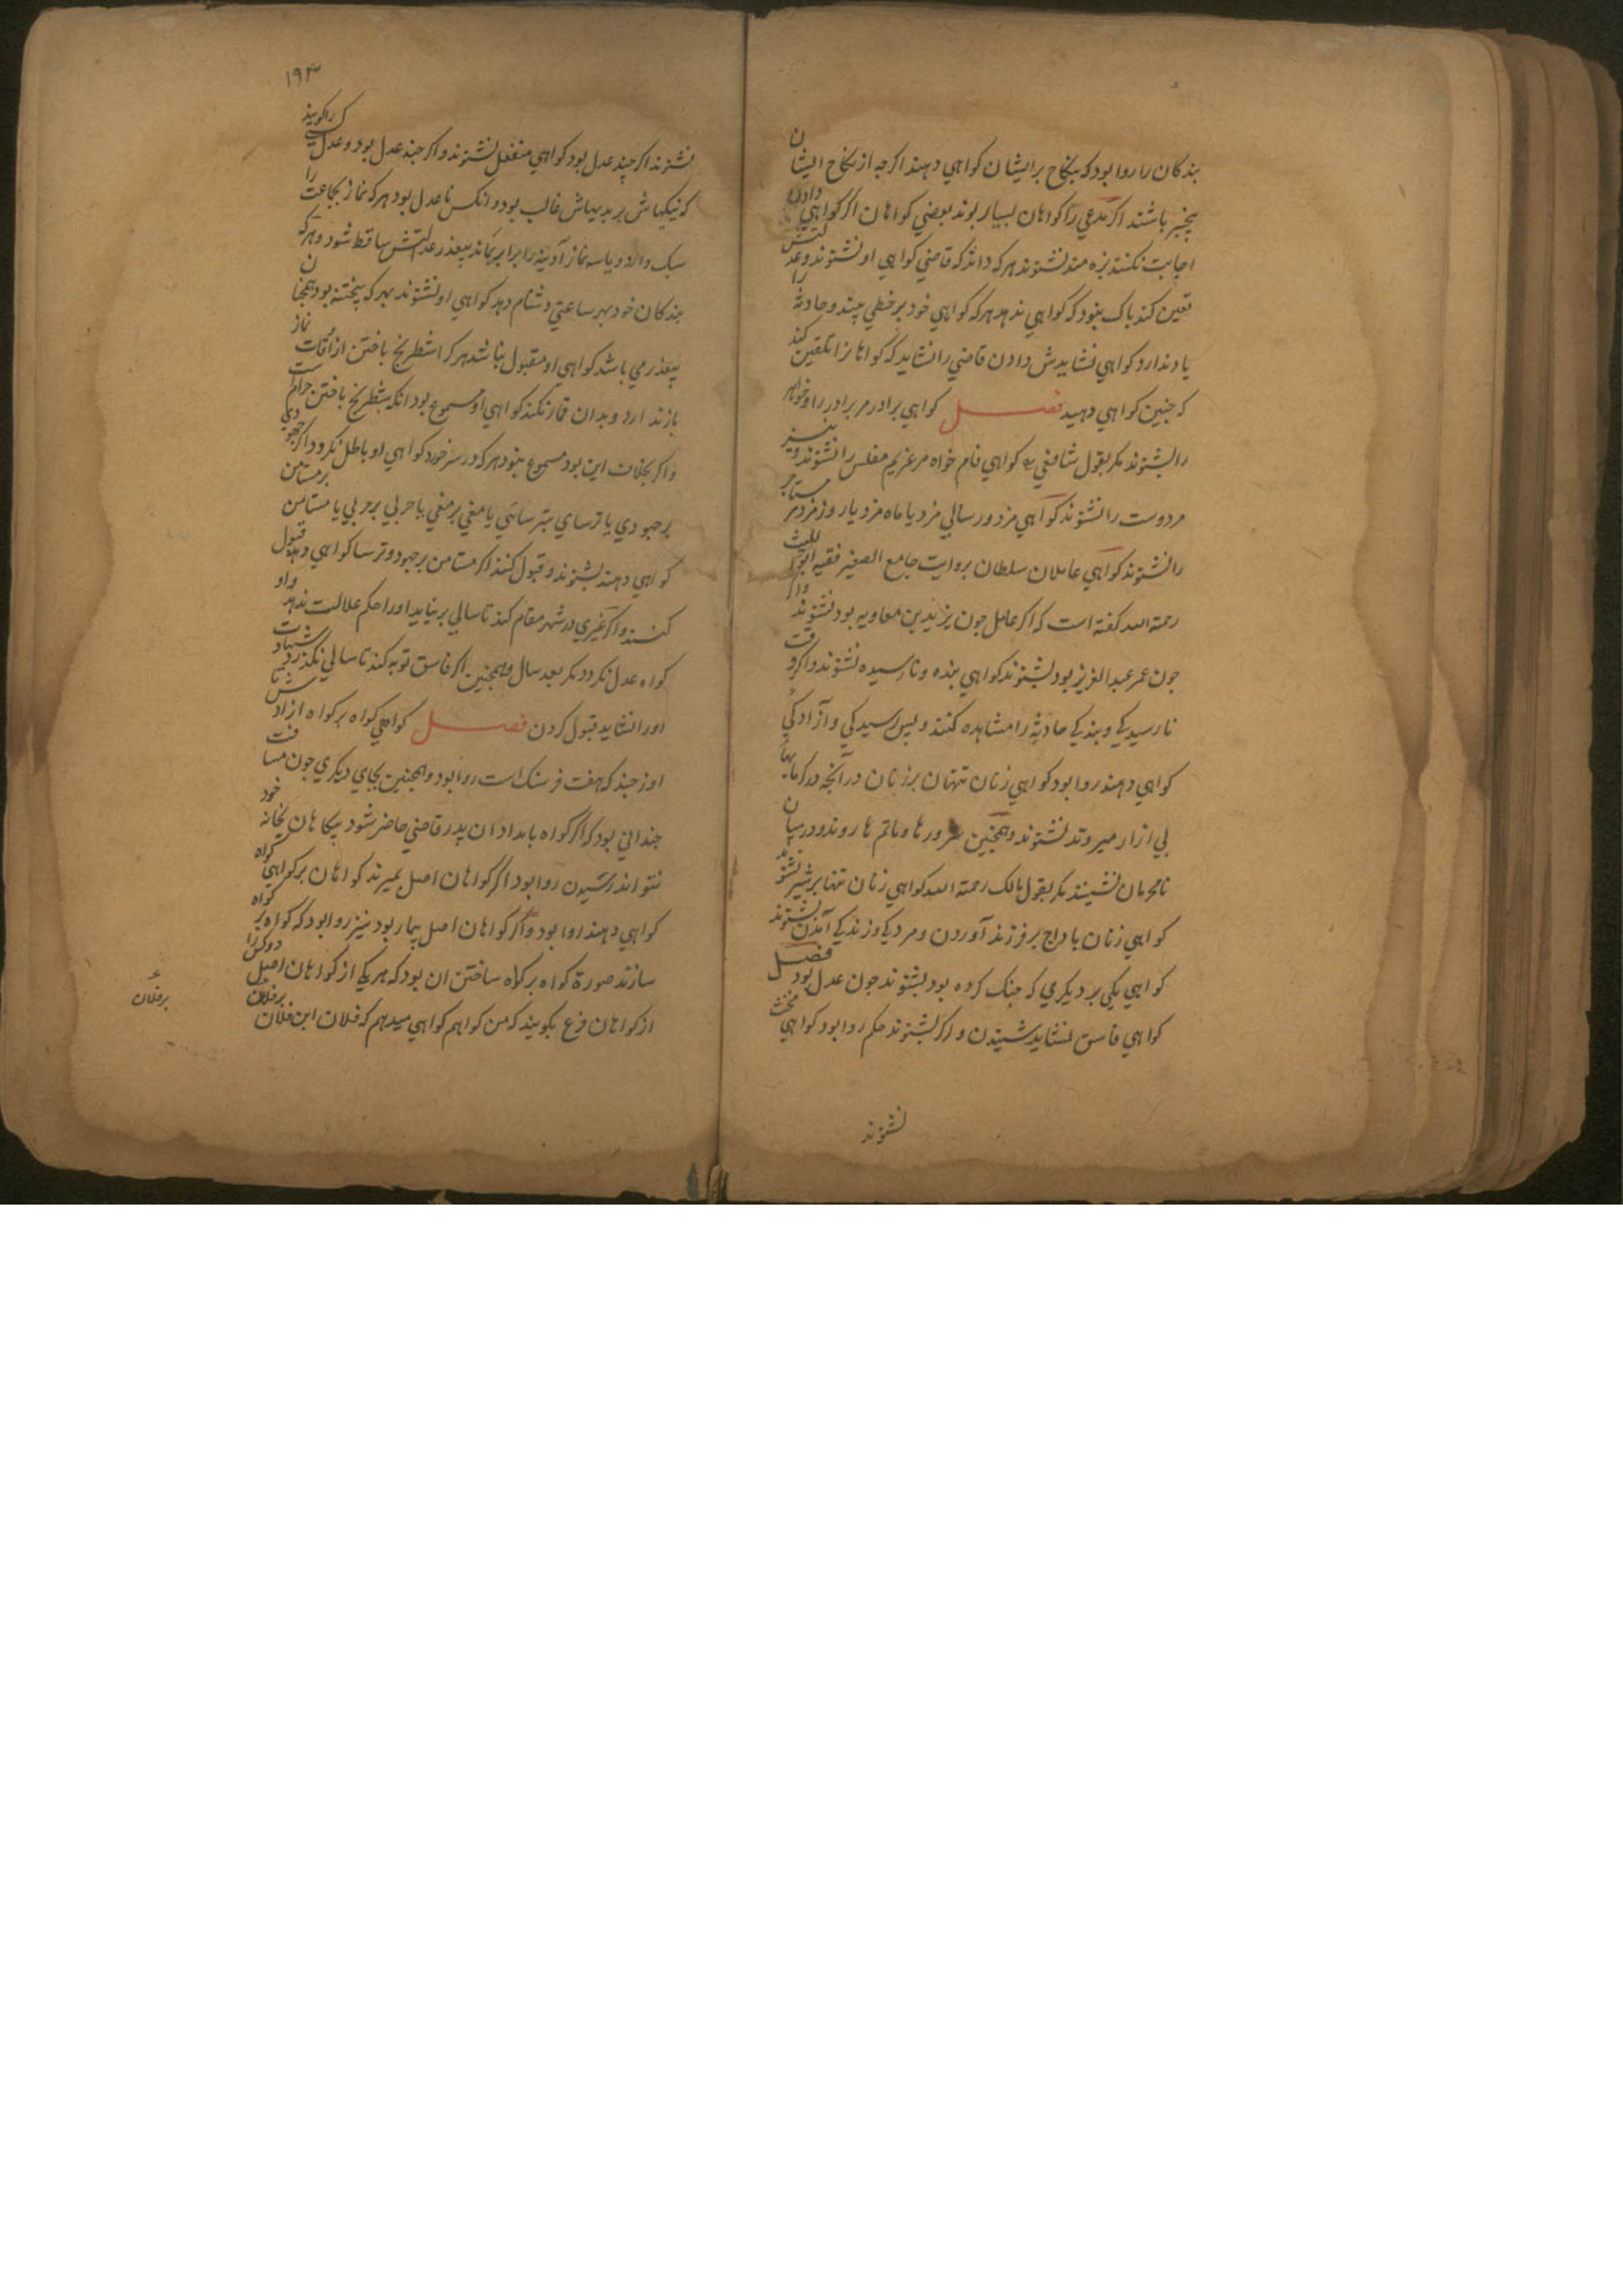 بندکان را روا بود که بنکاح بر ایشان کواهي دهند اکرجه از نکاح ایشان
بیخبر باشند اکر مدعي را کواهان بسیار بوند بعضي کواهان اکر کواهي دادن
اجابت نکنند بزه مند نشوند هرکه داند که قاضي کواهي او نشنوند و عدلتش
تعین کند باک نبود که کواهي ندهد هرکه کواهي خود بر خطي بیند و حادثه را
یاد ندارد کواهي نشایدش دادن قاضي را نشاید که کواهانرا تلقین کند
که جنین کواهي دهید فصل کواهي برادر مر برادر را و خواهر
را بشنوند مکر بقول شافعي کواهي فام خواه مر غریم مفلس را نشنوند و نیز
مر دوست را نشنوند کواهي مزدور سالي مزد یا ماه مزد یا روز مزد مر مستاجر
را نشنوند کواهي عاملان سلطان بروایت جامع الصغیر فقیه ابو اللیث
رحمة الله کفته است که اکر عامل جون یزید بن معاویه بود نشنوند و اکر
جون عمر عبد العزیز بود بشنوند کواهي بنده و نارسیده نشنوند و اکر وقت
نارسیدکي و بندکي حادثه را مشاهده کنند و بس رسیدکي و آزادکي
کواهي دهند روا بود کواهي زنان تنهان بر زنان در آنجه در کرمابها
بي ازار میروند نشنوند و همجنین سرورها و ماتم ها روند و در میان
نامحرمان نشینند مکر بقول مالک رحمة الله کواهي زنان تنها بر شیر نشنوند
کواهي زنان با داج بر فرزند آوردن و مردکي و زندکي آمدن نشنوند
کواهي یکي بر دیکري که جنک کرده بود بشنوند جون عدل بود فصل
کواهي فاسق نشاید شنیدن و اکر بشنوند حکم روا بود کواهي مخنث
نشنوند
۱۹۳
نشنوند اکر چند عدل بود کواهي منفعل نشنوند و اکر جند عدل بود و عدل کسي را کویند
که نیکیهاش بر بدیهاش غالب بود و انکس نا عدل بود هرکه نماز بجماعت را
سبک دارد و یا سه نماز آدینه را برابر بماند بیعذر عدلتش ساقط شود و هرکه
بندکان خود بهر ساعتي دشنام دهد کواهي او نشنوند بهر که بیختنه بود همجنان
بیعذر مي باشد کواهي او مقبول نباشد هرکرا شطرنج باختن از اوقات نماز
باز ندارد و بدان قمار نکند کواهي او مسموع بود انکه شطرنج باختن حرام است
و اکر بخلاف این بود مسموع نبود هرکه در سر خورد کواهي او باطل نکردد اکر جهودي
بر جهودي یا ترساي بترسائي یا مغي بر مغي یا حربي بر حربي یا مستامن بر مستامن
کواهي دهند بشنوند و قبول کنند اکر مستامن بر جهود و ترسا کواهي دهد قبول
کنند و اکر غیري در شهر مقام کند تا سالي بر نیاید او را حکم عدالت ندهد و او
کواه عدل نکردد مکر بعد سال و همجنین اکر فاسق توبه کند تا سالي نکذرد شهادت
او را نشاید قبول کردن فصل کواهي کواه بر کواه ازاد
اوزجند که هفت فرسنک است روا بود و همجنین بجاي دیکري جون مسافت
جنداني بود که اکر کواه بامدادان بدر قاضي حاضر شود بیکاهان بخانه خود
نتواند رسیدن روا بود اکر کواهان اصل بمیرند کواهان بر کواهي کواه
کواهي دهند روا بود و اکر کواهان اصل بیمار بود نیز روا بود که کواه بر کواه
سازند صورة کواه بر کواه ساختن ان بود که هر یکي از کواهان اصل دو کس را
از کواهان فرع بکویند که من کواهم کواهي میدهم که فلان ابن فلان بر فلان
بر فلان